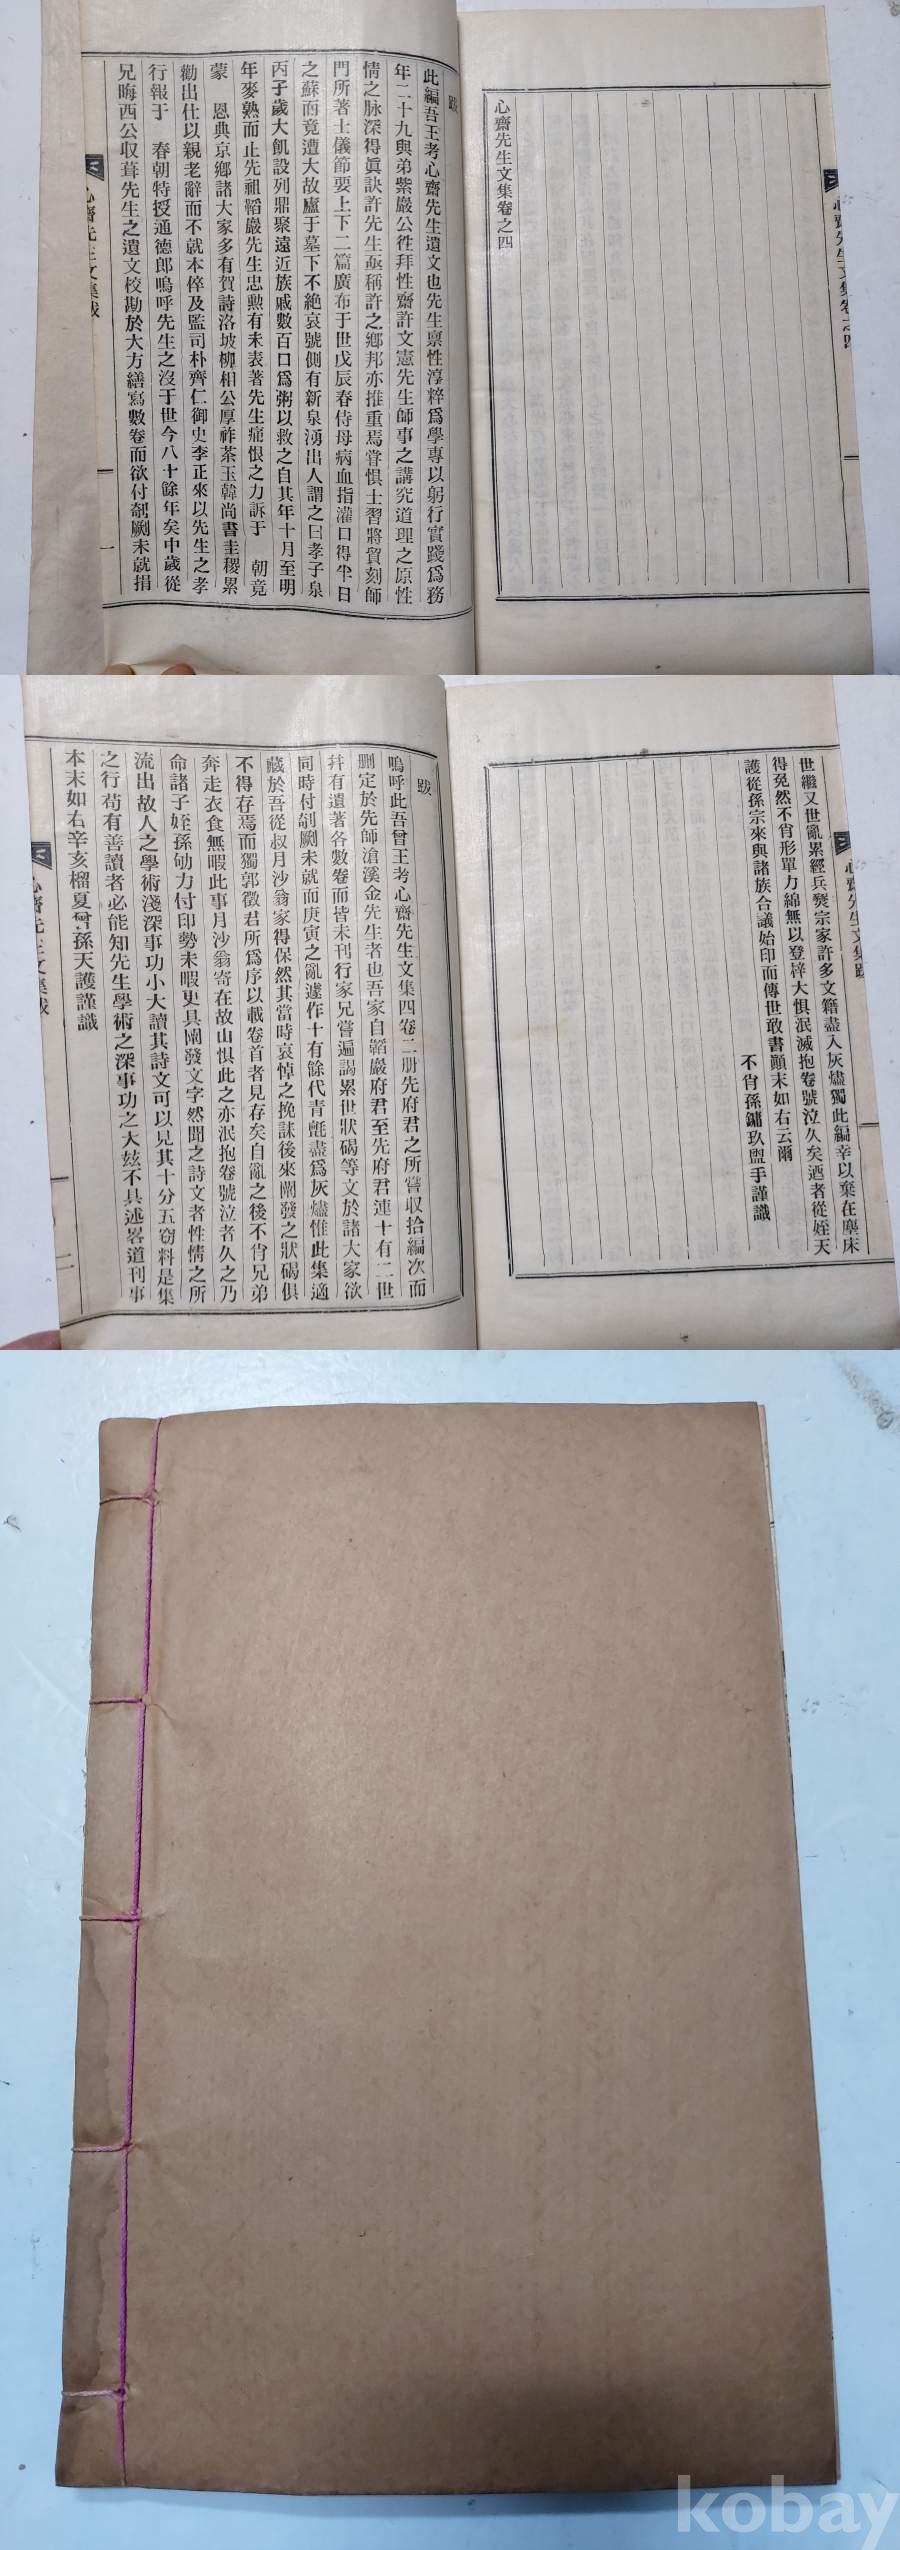 心齋先生文集卷之四
心齋先生文集卷之四
跋
此編吾王考心齋先生遺文也先生稟性淳粹爲學專以躬行實踐爲務
年二十九與弟紫嚴公徃拜性齋許文憲先生師事之講究道理之原性
情之脉深得眞訣許先生亟稱許之鄕邦亦推重焉甞惧士習將貿刻師
門所著士儀節要上下二篇廣布于世戊辰春侍母病血指灌口得半日
之蘇而竟遭大故廬于墓下不絶哀號側有新泉湧出人謂之曰孝子泉
丙子歲大飢設列鼎聚遠近族戚數百口爲粥以救之自其年十月至明
年麥熟而止先祖韜嚴先生忠勲有未表著先生痛恨之力訴于 朝竟
蒙 恩典京鄕諸大家多有賀詩洛坡柳相公厚祚茶玉韓尚書圭稷累
勸出仕以親老辭而不就本倅及監司朴齊仁御史李正來以先生之孝
行報于 春朝特授通德郎嗚呼先生之沒于世今八十餘年矣中歲從
兄晦西公収葺先生之遺文校勘於大方繕寫數卷而欲付剞劂未就捐
心齋先生文集跋
一
心齋先生文集跋
世繼又世亂累經兵燹宗家許多文籍盡入灰燼獨此編幸以棄在塵床
得免然不肖形單力綿無以登梓大惧泯滅抱卷號泣久矣迺者從姪天
護從孫宗來與諸族合議始印而傳世敢書顚末如右云爾
不肖孫鏞玖盥手謹識
跋
嗚呼此吾曾王考心齋先生文集四卷二册先府君之所甞収拾編次而
刪定於先師滄溪金先生者也吾家自韜嚴府君至先府君連十有二世
幷有遺著各數卷而皆未刊行家兄嘗遍謁累世狀碣等文於諸大家欲
同時付剞劂未就而庚寅之亂遽作十有餘代青氈盡爲灰燼惟此集適
藏於吾從叔月沙翁家得保然其當時哀悼之挽誄後來闡發之狀碣俱
不得存焉而獨郭徵君所爲序以載卷首者見存矣自亂之後不肖兄弟
奔走衣食無暇此事月沙翁寄在故山惧此之亦泯抱卷號泣者久之乃
命諸子姪孫劬力付印勢未暇更具闡發文字然聞之詩文者性情之所
流出故人之學術淺深事功小大讀其詩文可以見其十分五窃料是集
之行苟有善讀者必能知先生學術之深事功之大玆不具述畧道刊事
本末如右辛亥榴夏曾孫天護謹識
心齋先生文集跋
二
kobay